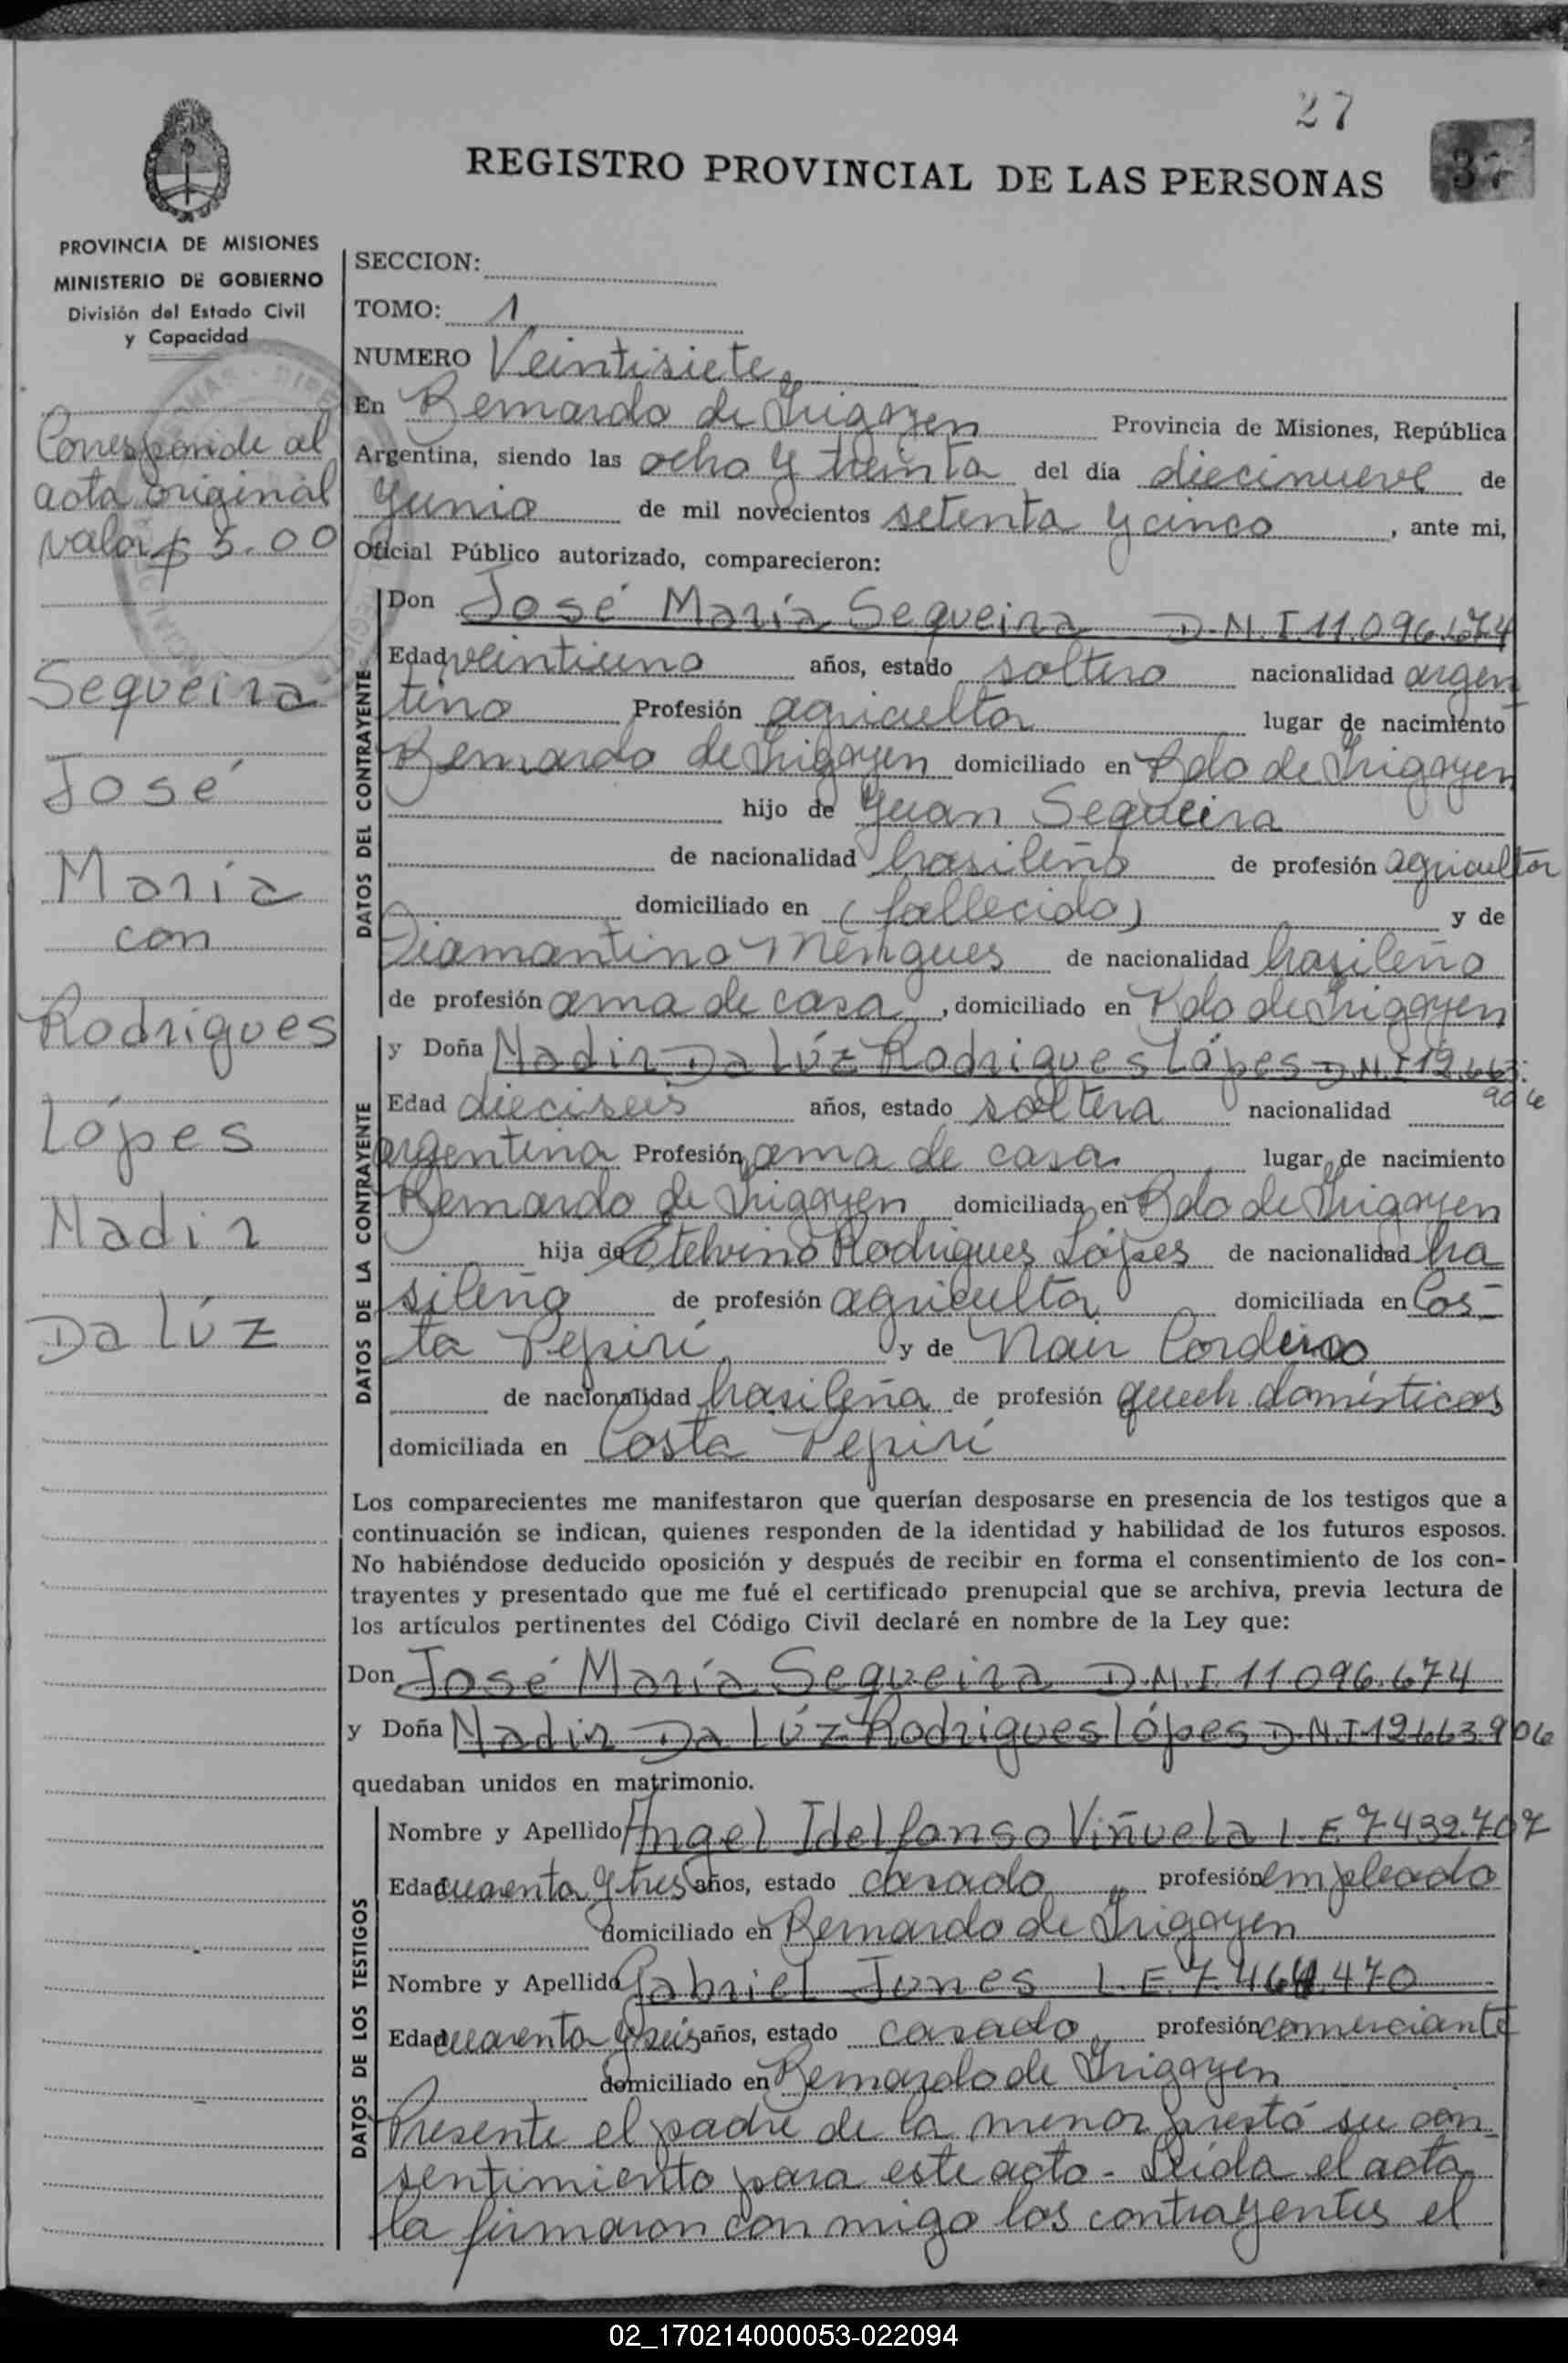 27
REGISTRO PROVINCIAL DE LAS PERSONAS
37
PROVINCIA DE MISIONES
MINISTERIO DE GOBIERNO
División del Estado Civil
y Capacidad
Corresponde al
acta original
valor $ 5.00
Sequeira
José
María
con
Rodrigues
Lópes
Nadir
Da Lúz
SECCION:
TOMO: 1
NUMERO Veintisiete
En Bernardo de Irigoyen Provincia de Misiones, República
Argentina, siendo las ocho y treinta del día diecinueve de
Junio de mil novecientos setenta y cinco, ante mi,
Oficial Público autorizado, comparecieron:
DATOS DEL CONTRAYENTE
Don José María Sequeira D.N.I 11.096.674
Edad veintiuno años, estado soltero nacionalidad argen
tino Profesión agricultor lugar de nacimiento
Bernardo de Irigoyen domiciliado en Bdo de Irigoyen
hijo de Juan Sequeira
de nacionalidad brasileño de profesión agricultor
domiciliado en (fallecido) y de
Diamantina de nacionalidad brasileña
de profesión ama de casa, domiciliado en Bdo de Irigoyen
DATOS DE LA CONTRAYENTE
y Doña Nadir Da Lúz Rodrigues Lópes D.N.I 12.663.
906
Edad dieciseis años, estado soltera nacionalidad
argentina Profesión ama de casa lugar de nacimiento
Bernardo de Irigoyen domiciliada en Bdo de Irigoyen
hija de Etelvino Rodrigues Lópes de nacionalidad bra
sileña de profesión agricultor domiciliada en Cos-
ta Pepirí y de Nair Cordeiro
de nacionalidad brasileña de profesión queh. domésticos
domiciliada en Costa Pepirí
Los comparecientes me manifestaron que querían desposarse en presencia de los testigos que a
continuación se indican, quienes responden de la identidad y habilidad de los futuros esposos.
No habiéndose deducido oposición y después de recibir en forma el consentimiento de los con-
trayentes y presentado que me fué el certificado prenupcial que se archiva, previa lectura de
los artículos pertinentes del Código Civil declaré en nombre de la Ley que:
Don José María Sequeira D.N.I. 11.096.674
y Doña Nadir Da Lúz Rodrigues Lópes D.N.I 12.663.906
quedaban unidos en matrimonio.
DATOS DE LOS TESTIGOS
Nombre y Apellido Angel Idelfonso Viñuela L.E. 7.432.707
Edad cuarenta y tres años, estado casado profesión empleado
domiciliado en Bernardo de Irigoyen
Nombre y Apellido Gabriel Junes L.E. 7.464.470
Edad cuarenta y seis años, estado casado profesión comerciante
domiciliado en Bernardo de Irigoyen
Presente el padre de la menor prestó su con-
sentimiento para este acto - Leída el acta
la firmaron con migo los contrayentes el
02_170214000053-022094